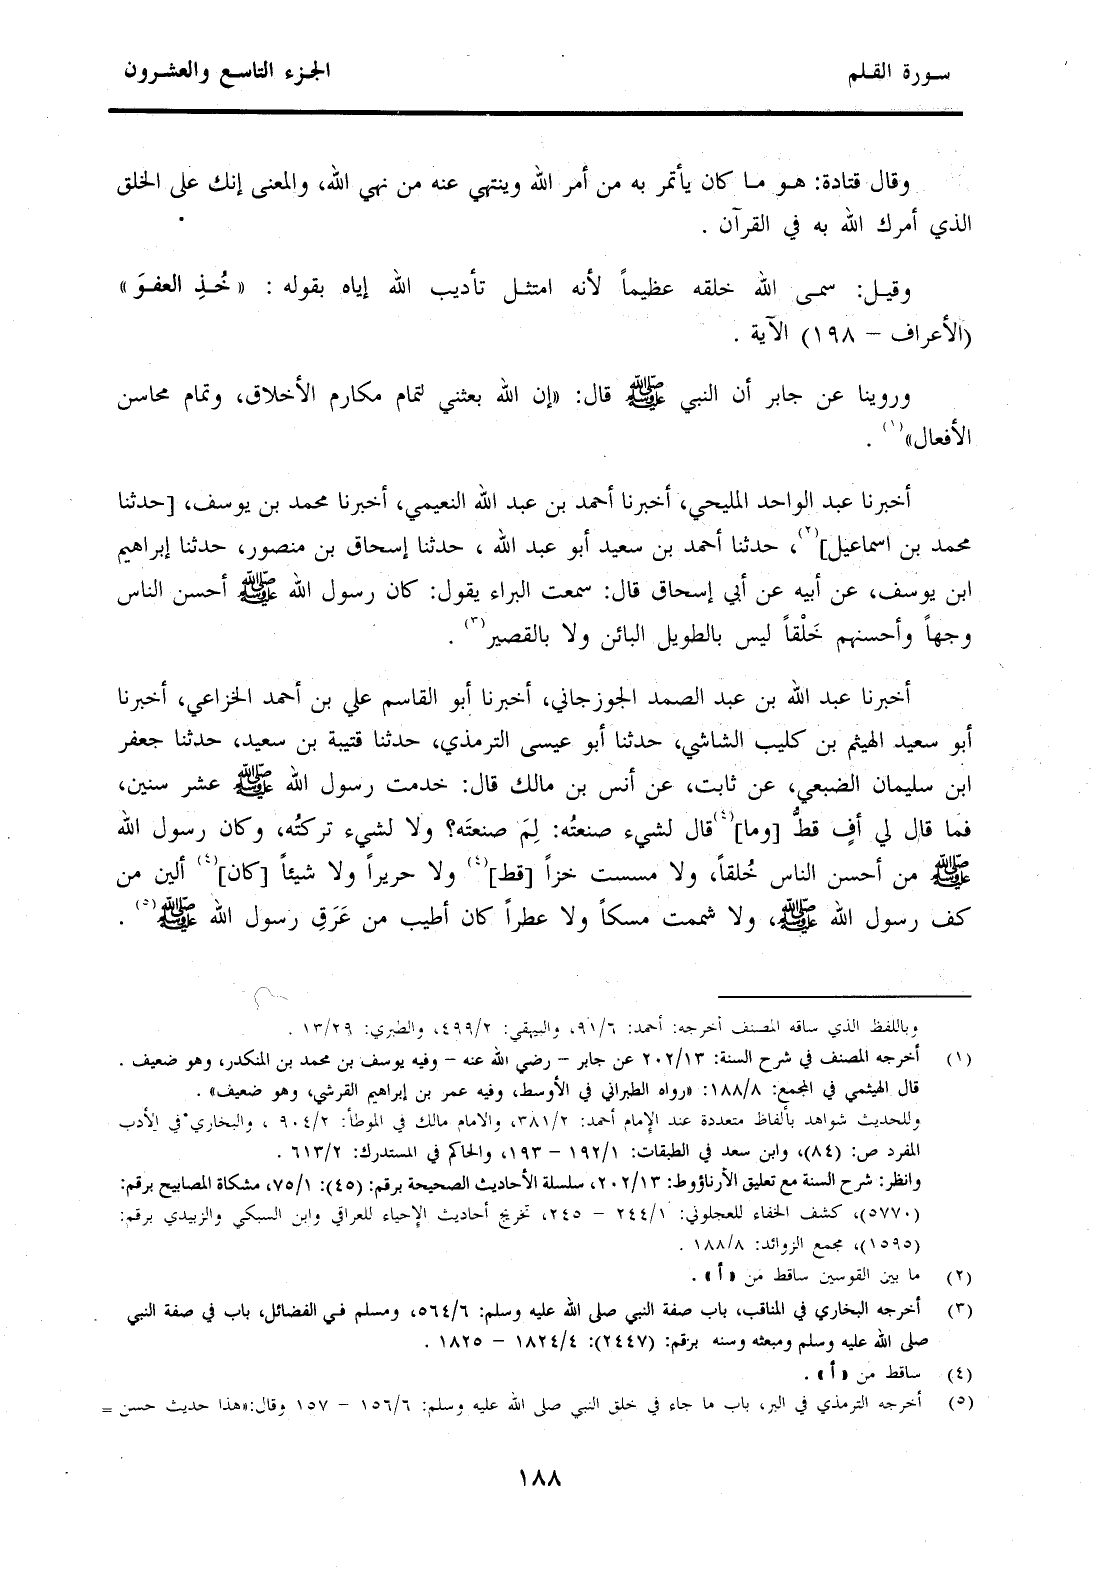 سورة القلم
الجزء التاسع والعشرون
وقال قتادة: هو ما كان يأتمر به من أمر الله وينتهي عنه من نهي الله، والمعنى إنك على الخلق
الذي أمرك الله به في القرآن .
وقيل: سمى الله خلقه عظيماً لأنه امتثل تأديب الله إياه بقوله : « خُذِ العفوَ »
(الأعراف – ١٩٨) الآية .
وروينا عن جابر أن النبي ﷺ قال: «إن الله بعثني لتمام مكارم الأخلاق، وتمام محاسن
الأفعال»(١) .
أخبرنا عبد الواحد المليحي، أخبرنا أحمد بن عبد الله النعيمي، أخبرنا محمد بن يوسف، [حدثنا
محمد بن اسماعيل](٢)، حدثنا أحمد بن سعيد أبو عبد الله ، حدثنا إسحاق بن منصور، حدثنا إبراهيم
ابن يوسف، عن أبيه عن أبي إسحاق قال: سمعت البراء يقول: كان رسول الله ﷺ أحسن الناس
وجهاً وأحسنهم خَلْقاً ليس بالطويل البائن ولا بالقصير(٣) .
أخبرنا عبد الله بن عبد الصمد الجوزجاني، أخبرنا أبو القاسم علي بن أحمد الخزاعي، أخبرنا
أبو سعيد الهيثم بن كليب الشاشي، حدثنا أبو عيسى الترمذي، حدثنا قتيبة بن سعيد، حدثنا جعفر
ابن سليمان الضبعي، عن ثابت، عن أنس بن مالك قال: خدمت رسول الله ﷺ عشر سنين،
فما قال لي أفٍ قطُّ [وما](٤)قال لشيء صنعتُه: لِمَ صنعتَه؟ ولا لشيء تركتُه، وكان رسول الله
ﷺ من أحسن الناس خُلقاً، ولا مسست خزاً [قط](٤) ولا حريراً ولا شيئاً [كان](٤) ألين من
كف رسول الله ﷺ، ولا شممت مسكاً ولا عطراً كان أطيب من عَرَقِ رسول الله ﷺ(٥) .
وباللفظ الذي ساقه المصنف أخرجه: أحمد: ٩١/٦، والبيهقي: ٤٩٩/٢، والطبري: ١٣/٢٩ .
(١) أخرجه المصنف في شرح السنة: ٢٠٢/١٣ عن جابر – رضي الله عنه – وفيه يوسف بن محمد بن المنكدر، وهو ضعيف .
قال الهيثمي في المجمع: ١٨٨/٨: «رواه الطبراني في الأوسط، وفيه عمر بن إبراهيم القرشي، وهو ضعيف» .
وللحديث شواهد بألفاظ متعددة عند الإمام أحمد: ٣٨١/٢، والامام مالك في الموطأ: ٩٠٤/٢ ، والبخاري في الأدب
المفرد ص: (٨٤)، وابن سعد في الطبقات: ١٩٢/١ – ١٩٣، والحاكم في المستدرك: ٦١٣/٢ .
وانظر: شرح السنة مع تعليق الأرناؤوط: ٢٠٢/١٣، سلسلة الأحاديث الصحيحة برقم: (٤٥): ٧٥/١، مشكاة المصابيح برقم:
(٥٧٧٠)، كشف الخفاء للعجلوني: ٢٤٤/١ – ٢٤٥، تخريج أحاديث الإحياء للعراقي وابن السبكي والزبيدي برقم:
(١٥٩٥)، مجمع الزوائد: ١٨٨/٨ .
(٢) ما بين القوسين ساقط من «أ» .
(٣) أخرجه البخاري في المناقب، باب صفة النبي صلى الله عليه وسلم: ٥٦٤/٦، ومسلم في الفضائل، باب في صفة النبي
صلى الله عليه وسلم ومبعثه وسنه برقم: (٢٤٤٧): ١٨٢٤/٤ – ١٨٢٥ .
(٤) ساقط من «أ» .
(٥) أخرجه الترمذي في البر، باب ما جاء في خلق النبي صلى الله عليه وسلم: ١٥٦/٦ – ١٥٧ وقال:«هذا حديث حسن =
١٨٨